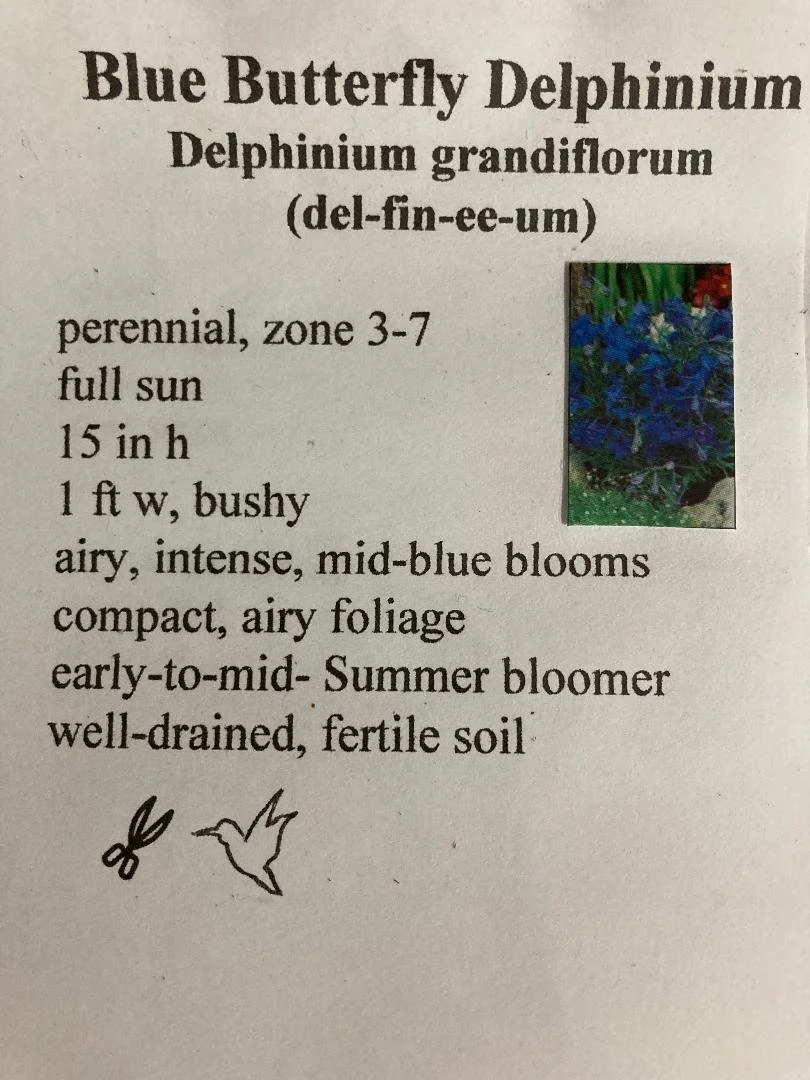 Blue Butterfly Delphinium
Delphinium grandiflorum
(del-fin-ee-um)
perennial, zone 3-7
full sun
15 in h
1 ft w, bushy
airy, intense, mid-blue blooms
compact, airy foliage
early-to-mid- Summer bloomer
well-drained, fertile soil